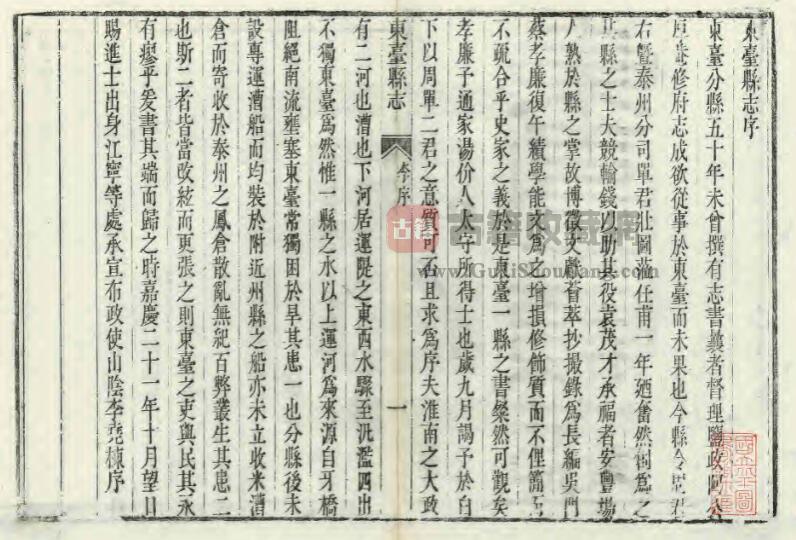 東臺縣志序
東臺分縣五十年未曾撰有志書曩者督理鹽政阿公
修府志成欲從事於東臺而未果也今縣令周君
右曁泰州分司單君壯圖蒞任甫一年廼奮然剏爲之
縣之士夫競輸錢以助其役袁茂才承福者安豐場
人熟於縣之掌故博徵文獻薈萃抄撮錄爲長編吳門
蔡孝廉復午績學能文爲之增損修飾質而不俚簡而
不疏合乎史家之義於是東臺一縣之書粲然可觀矣
孝廉予通家湯价人太守所得士也歲九月謁予於白
下以周單二君之意質可否且求爲序夫淮南之大政
東臺縣志
李序
一
有二河也漕也下河居運隄之東西水驟至汎濫四出
不獨東臺爲然惟一縣之水以上運河爲來源自牙橋
阻絕南流壅塞東臺常獨困於旱其患一也分縣後未
設專運漕船而均裝於附近州縣之船亦未立收米漕
倉而寄收於泰州之鳳倉散亂無紀百弊叢生其患二
也斯二者皆當改絃而更張之則東臺之吏與民其永
有瘳乎爰書其端而歸之時嘉慶二十一年十月望日
賜進士出身江寧等處承宣布政使山陰李堯棟序
古籍收藏網
www.GuJiShouCang.com